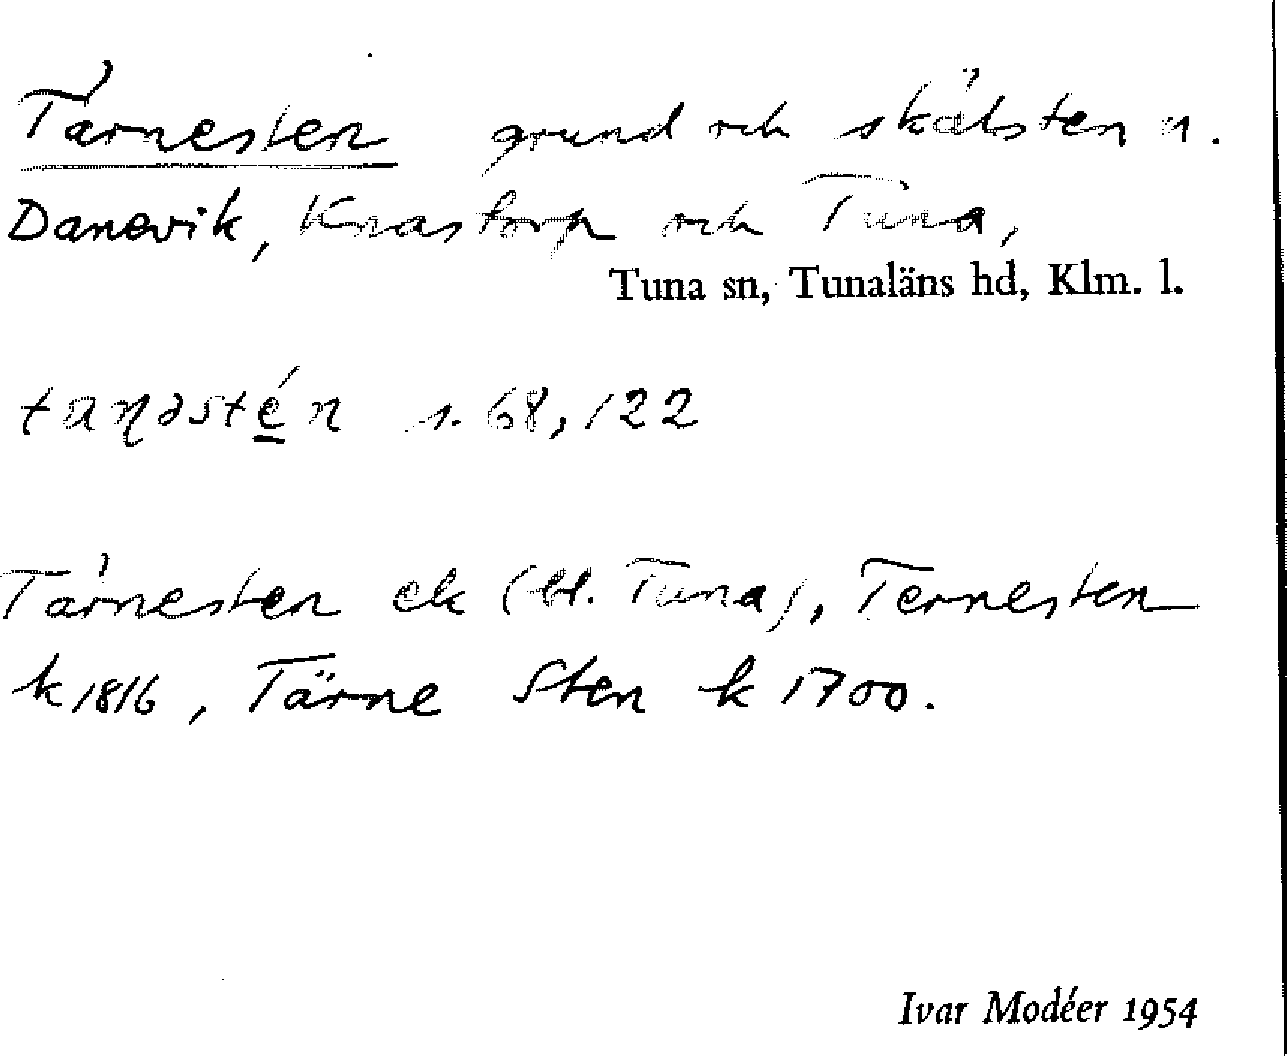 Tärnesten grund och skälsten n.
Danevik, Knastorp och Tuna,
Tuna sn, Tunaläns hd, Klm. l.
taɳəstén s. 68, 122
Tärnesten ek (bl. Tuna), Ternesten
k 1816, Tärne Sten k 1700.
Ivar Modéer 1954